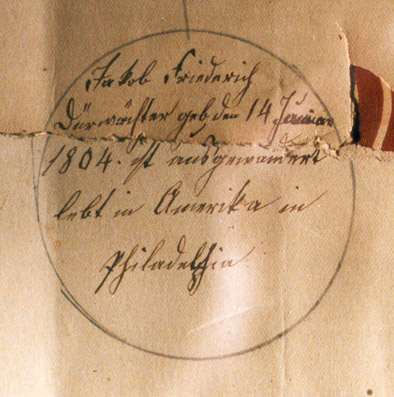 Jakob Friederich
Dürwächter geb, den 14 Januar
1804. ist ausgewandert
lebt in Amerika in
Philadelphia